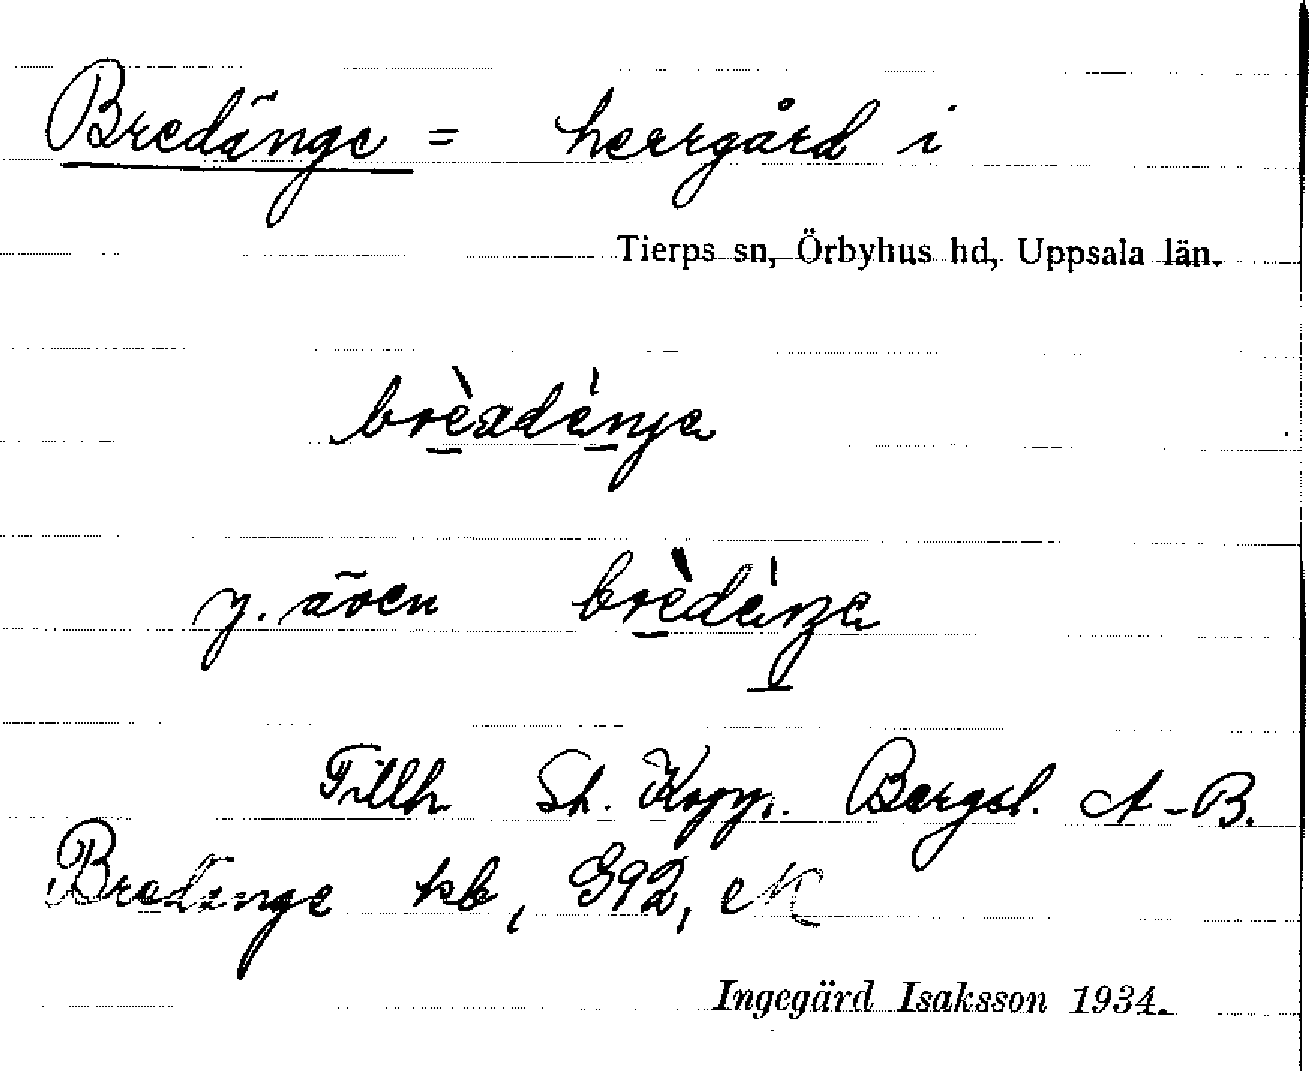 Bredänge = herrgård i
Tierps sn, Örbyhus hd, Uppsala län.
y. även
Tillh St. Kopp. Bergsl. A-B.
Bredänge kb, G92, M
Ingegärd Isaksson 1934.